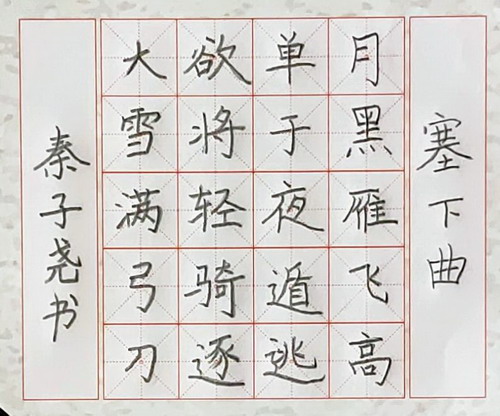 塞下曲
月黑雁飞高
单于夜遁逃
欲将轻骑逐
大雪满弓刀
秦子尧书